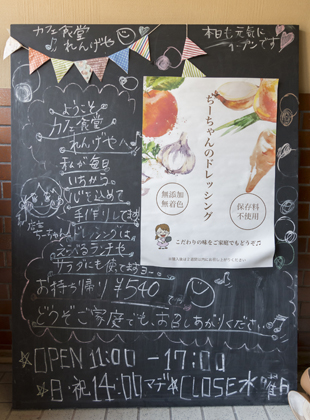 カフェ食堂
れんげや
本日も元気に
オープンです
ようこそ
カフェ食堂
れんげやへ
私が毎日
心を込めて
手作りしてます
ちーちゃんドレッシングは
えらべるランチや
サラダにも使てますヨ〜。
お持ち帰り ¥540
どうぞご家庭でも、お召しあがりください。
ちーちゃんのドレッシング
無添加
無着色
保存料
不使用
こだわりの味をご家庭でもどうぞ♫
☆OPEN 11:00 -17:00
☆日・祝 14:00マデ☆CLOSE 水曜日